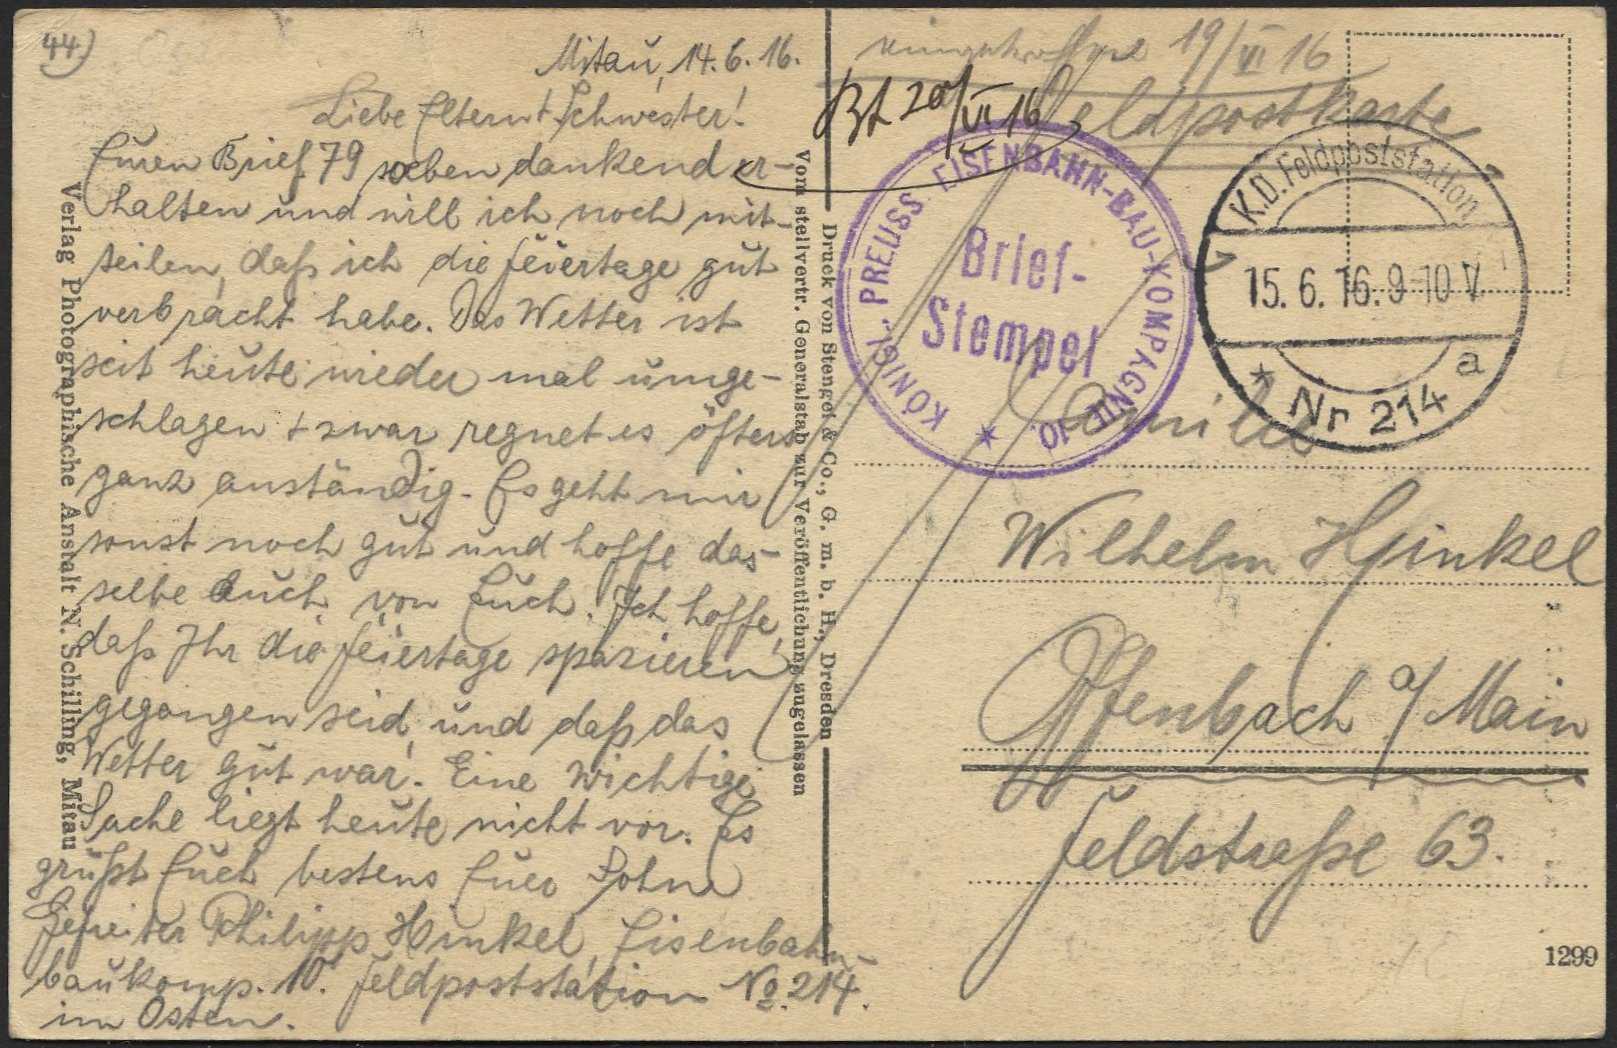 44)
Mitau, 14.6.16.
Liebe Eltern + Schwester!
Euren Brief 79 soeben dankend er-
halten und will ich noch mit-
teilen, daß ich die Feiertage gut
verbracht habe. Das Wetter ist
seit heute wieder mal umge-
schlagen + zwar regnet es öfters
ganz anständig. Es geht mir
sonst noch gut und hoffe das-
selbe auch von Euch. Ich hoffe,
daß Ihr die Feiertage spazieren
gegangen seid, und daß das
Wetter gut war. Eine wichtige
Sache liegt heute nicht vor. Es
grüßt Euch bestens Euer Sohn
Gefreiter Philipp Hinkel, Eisenbahn-
baukomp. 10. Feldpoststation No. 214.
im Osten.
Verlag Photographische Anstalt N. Schilling, Mitau
Druck von Stengel & Co., G. m. b. H., Dresden
Vom stellvertr. Generalstab zur Veröffentlichung zugelassen
19/VI 16
Bt 20/VI 16
Feldpostkarte
KÖNIGL. PREUSS. EISENBAHN-BAU-KOMPAGNIE 10.
Brief-
Stempel
K.D. Feldpoststation
15.6.16. 9-10 V
a
* Nr 214
Familie
Wilhelm Hinkel
Offenbach a/Main
Feldstraße 63.
1299